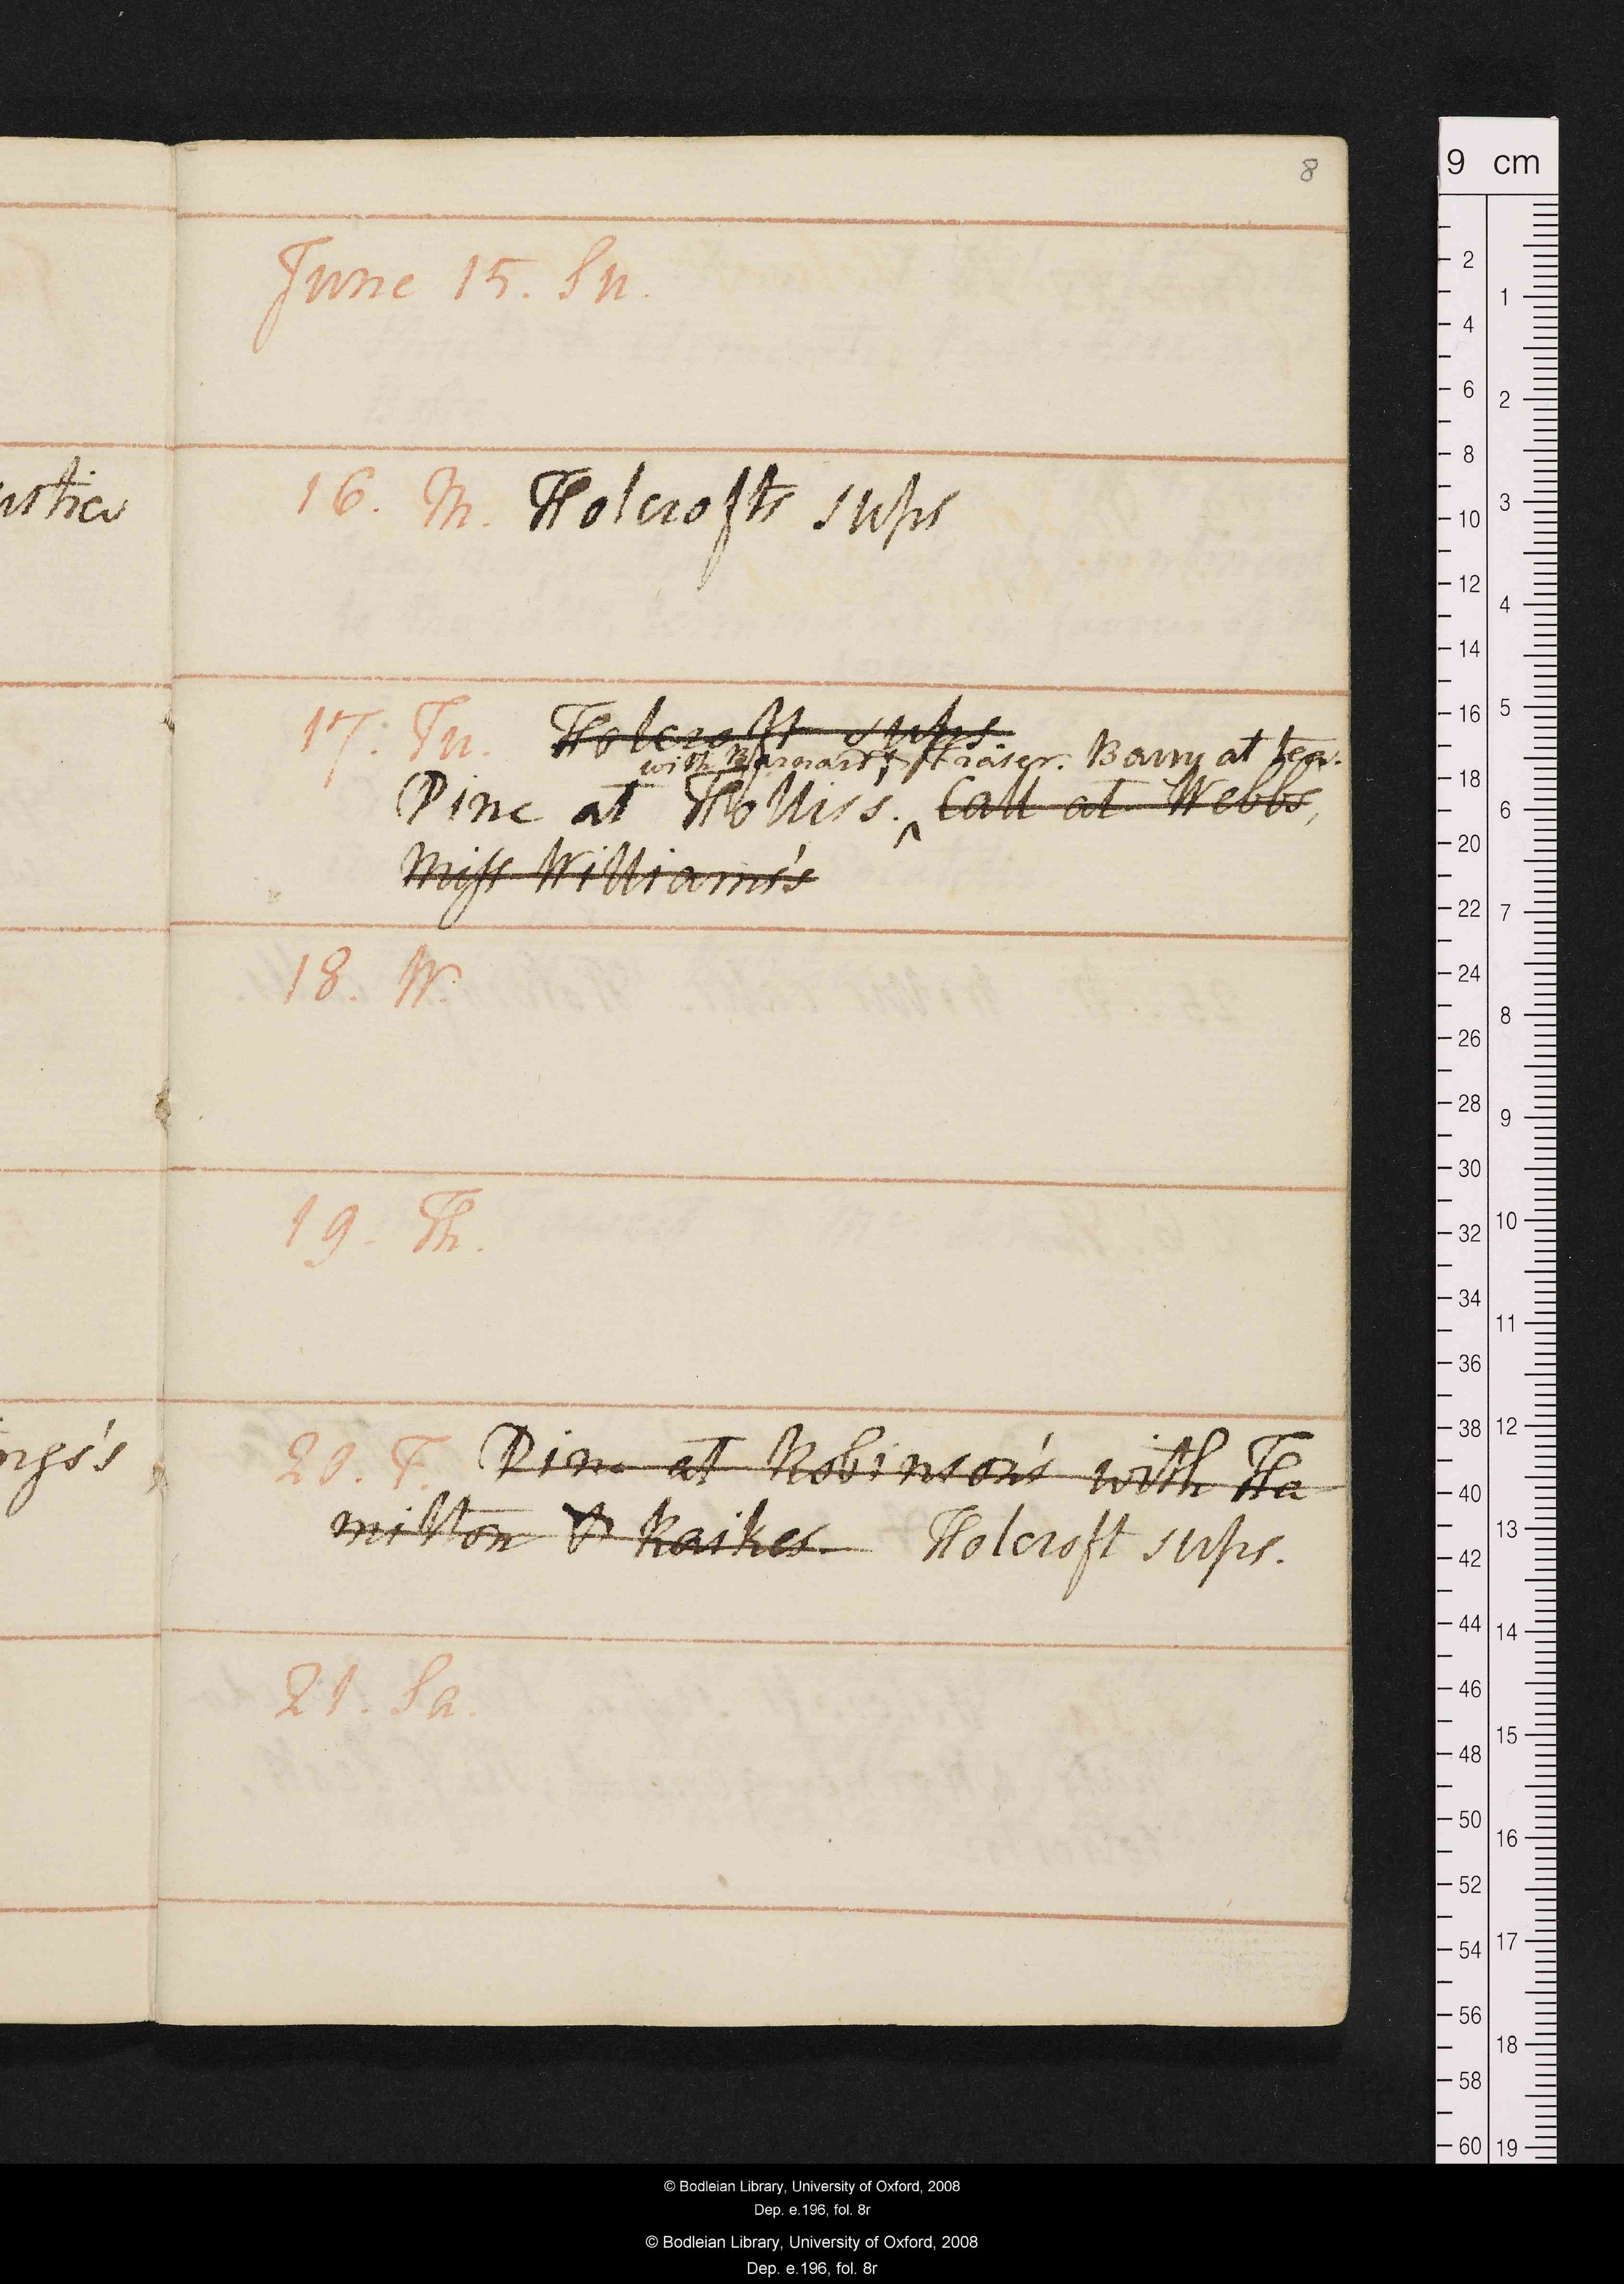 8
June 15. Su.
ustice
16. M. Holcrofts sups
17. Tu. Holcroft sups
with Barnard & Fraser. Barry at tea.
Dine at Hollis's. ^ Call at Webbs,
Miss Williams's
18. W.
19. Th.
ngs's
20. F. Dine at Robinson's with Ha
milton & Raikes. Holcroft sups.
21. Sa.
9 cm
2
4
6
8
10
12
14
16
18
20
22
24
26
28
30
32
34
36
38
40
42
44
46
48
50
52
54
56
58
60
1
2
3
4
5
6
7
8
9
10
11
12
13
14
15
16
17
18
19
© Bodleian Library, University of Oxford, 2008
Dep. e.196, fol. 8r
© Bodleian Library, University of Oxford, 2008
Dep. e.196, fol. 8r